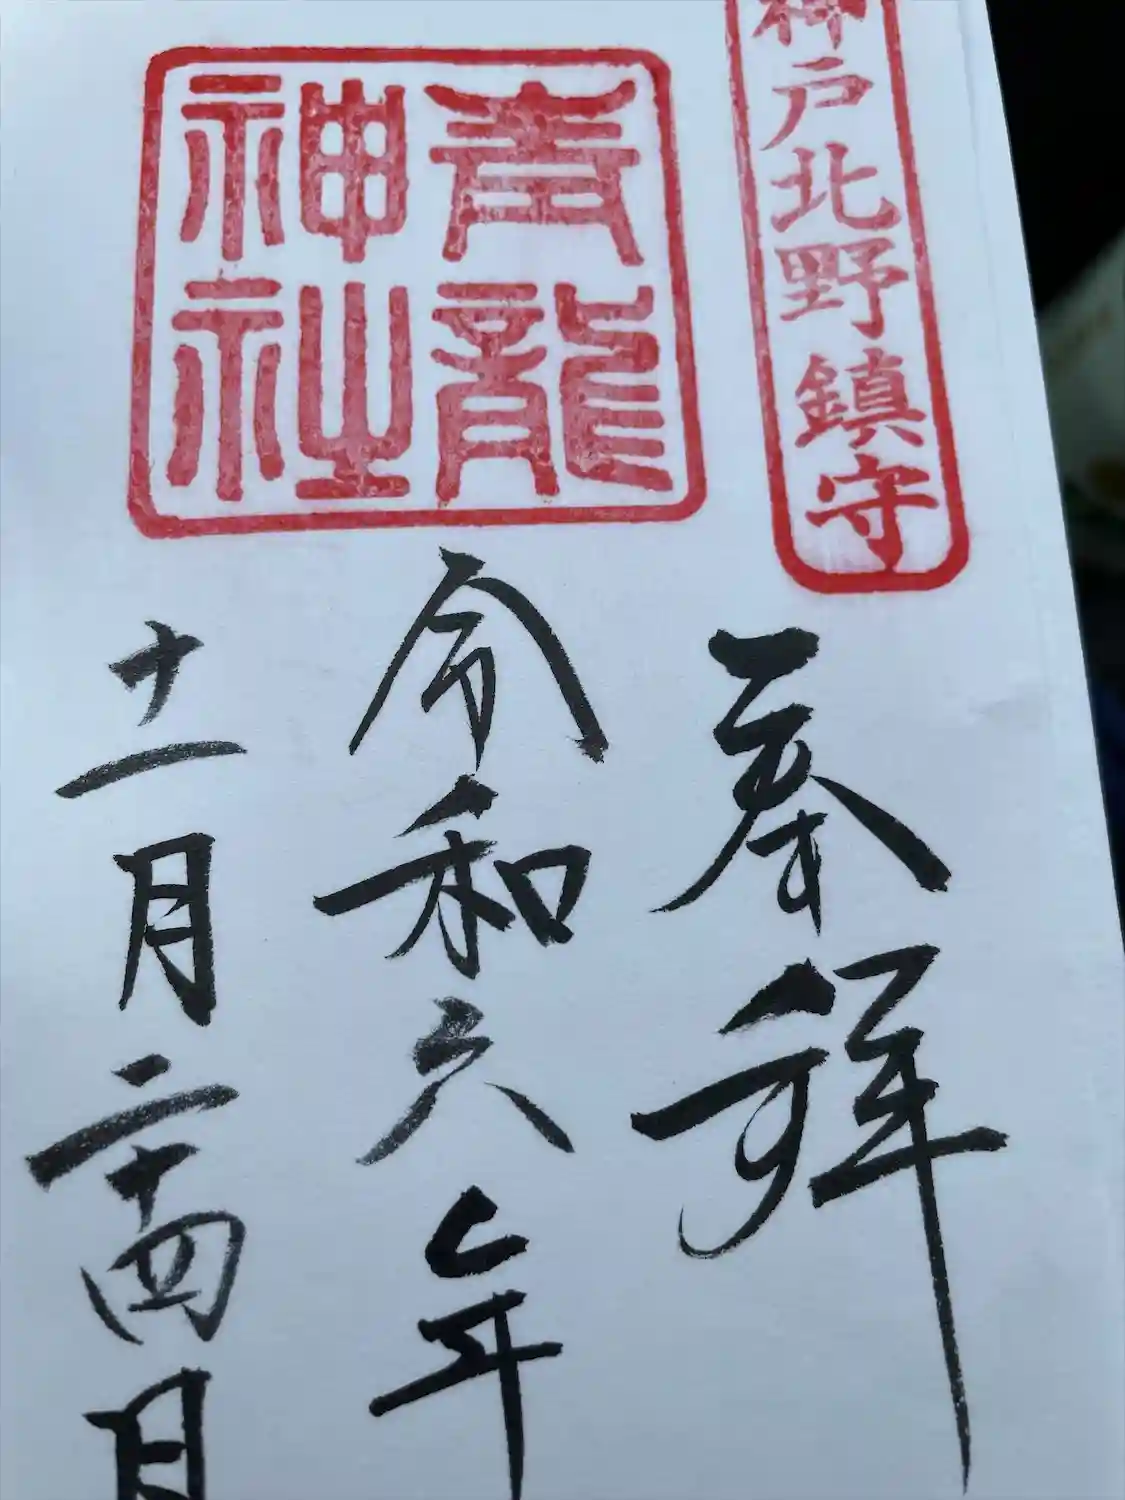 神戸北野鎮守
青龍
神社
奉拝
令和六年
十一月二十四日